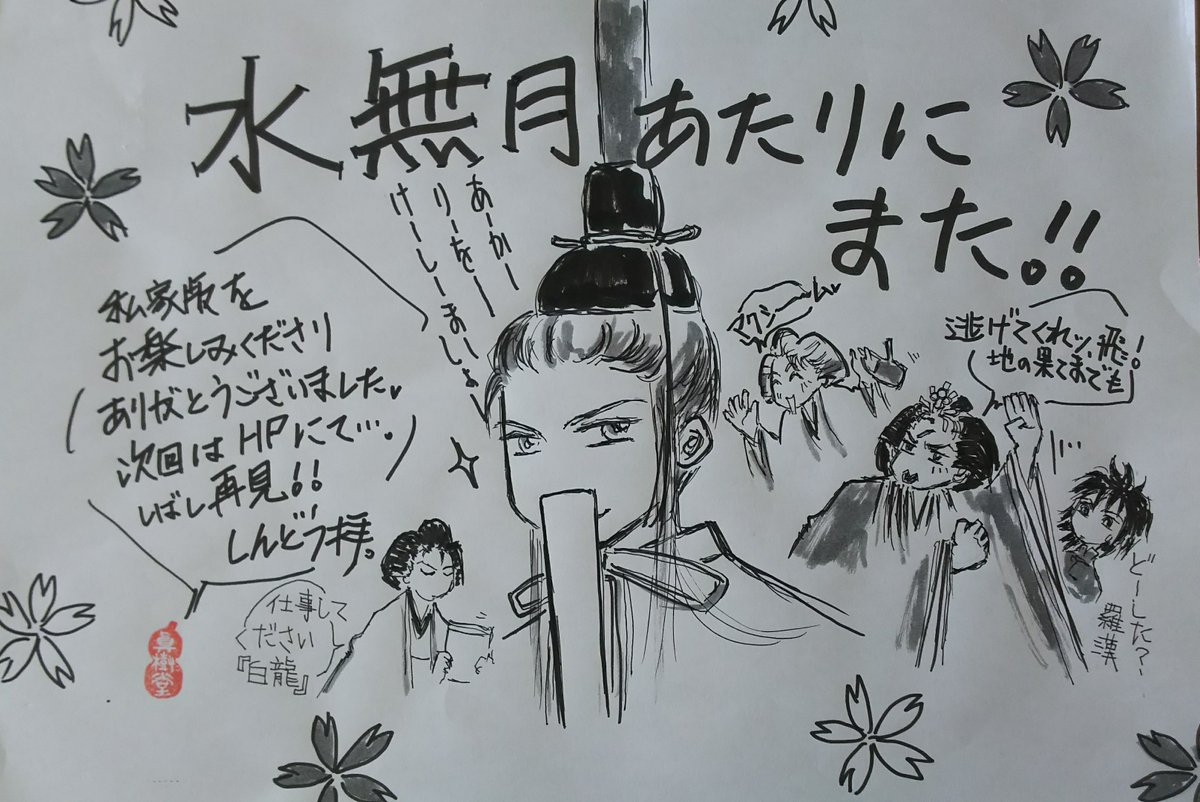 水無月あたりに
また!!
あーかー
りーをー
けーしーまーしょ
私家版を
お楽しみくださり
ありがとうございました。
次回はHPにて…。
しばし再見!!
しんどう拝。
マクシーム
逃げてくれッ、飛!
地の果てまでも
どーした?
羅漢
仕事して
ください
『白龍』
真樹堂